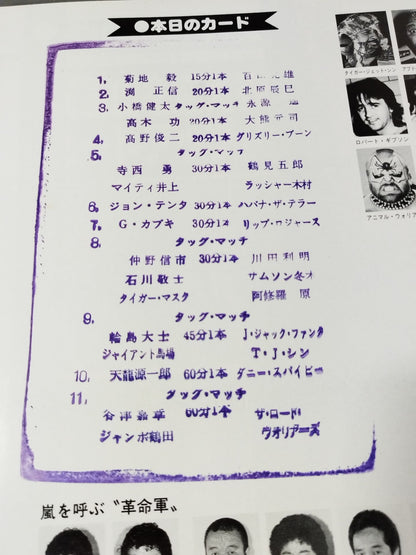 ●本日のカード
1, 菊地 毅 15分1本 百田光雄
2, 渕 正信 20分1本 北原辰巳
3, 小橋健太 タッグ・マッチ 永源 遙
高木 功 20分1本 大熊元司
4, 高野俊二 20分1本 グリズリー・ブーン
5, タッグ・マッチ
寺西 勇 30分1本 鶴見五郎
マイティ井上 ラッシャー木村
6, ジョン・テンタ 30分1本 ハバナ・ザ・テラー
7, G・カブキ 30分1本 リップ・ロジャース
8, タッグ・マッチ
仲野信市 30分1本 川田利明
石川敬士 サムソン冬木
タイガー・マスク 阿修羅 原
9, タッグ・マッチ
輪島大士 45分1本 J・ジャック・ファンク
ジャイアント馬場 T・J・シン
10, 天龍源一郎 60分1本 ダニー・スパイビー
11, タッグ・マッチ
谷津嘉章 60分1本 ザ・ロード・
ジャンボ鶴田 ウォリアーズ
嵐を呼ぶ〝革命軍〟
タイガー・ジェット・シン
ロバート・ギブソン
アニマル・ウォリア